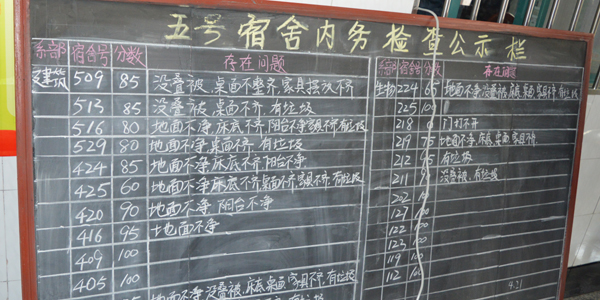 五号宿舍内务检查公示栏
系部 宿舍号 分数 存在问题
建筑 509 85 没叠被,桌面不整齐,家具摆放不齐
513 85 没叠被,桌面不齐,有垃圾
516 80 地面不净,床底不齐,阳台不净,家具不齐,有垃圾
529 80 地面不净,桌面不齐,有垃圾
424 85 地面不净,床底不齐,阳台不净
425 60 地面不净,床底不齐,桌面不齐,家具不齐,有垃圾
420 90 地面不净,阳台不净
416 95 地面不净
409 100
405 100
85 地面不净,没叠被,床底,桌面,家具不齐,有垃圾
系部 宿舍号 分数 存在问题
生物 224 65 地面不净,没叠被,床底,桌面,家具不齐,有垃圾
225 100
218 门打不开
219 75 地面不净,床底,桌面,家具不齐
212 95 有垃圾
211 没叠被,有垃圾
202
127 100
122 100
123 100
119 100
112 100
4.21